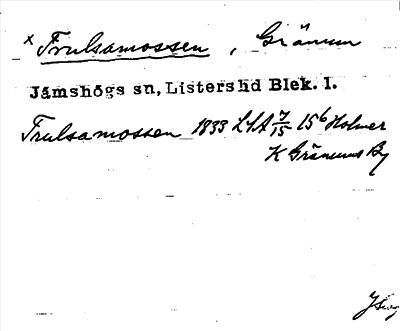 x Frulsamossen, Gränum
Jämshögs sn, Listers hd Blek. l.
Frulsamossen 1833 LSA 7/15 15⁶ Holmer
K Gränums By